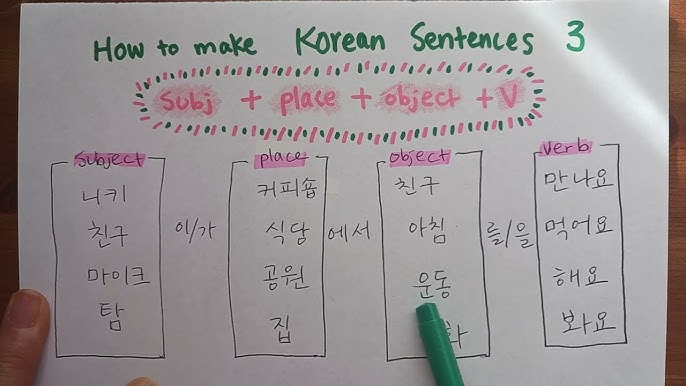 How to make Korean Sentences 3
Subj + place + object + V
Subject place object verb
니키 커피숍 친구 만나요
친구 이/가 식당 에서 아침 를/을 먹어요
마이크 공원 운동 해요
탐 집 봐요